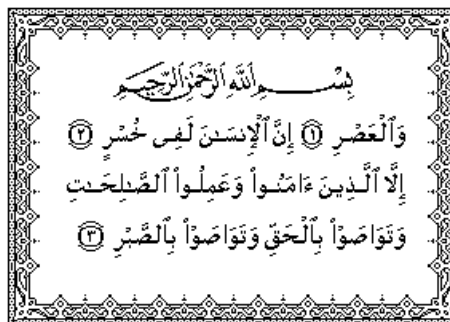 بِسْمِ ٱللَّهِ ٱلرَّحْمَٰنِ ٱلرَّحِيمِ
وَٱلْعَصْرِ ١ إِنَّ ٱلْإِنسَٰنَ لَفِى خُسْرٍ ٢
إِلَّا ٱلَّذِينَ ءَامَنُوا۟ وَعَمِلُوا۟ ٱلصَّٰلِحَٰتِ
وَتَوَاصَوْا۟ بِٱلْحَقِّ وَتَوَاصَوْا۟ بِٱلصَّبْرِ ٣